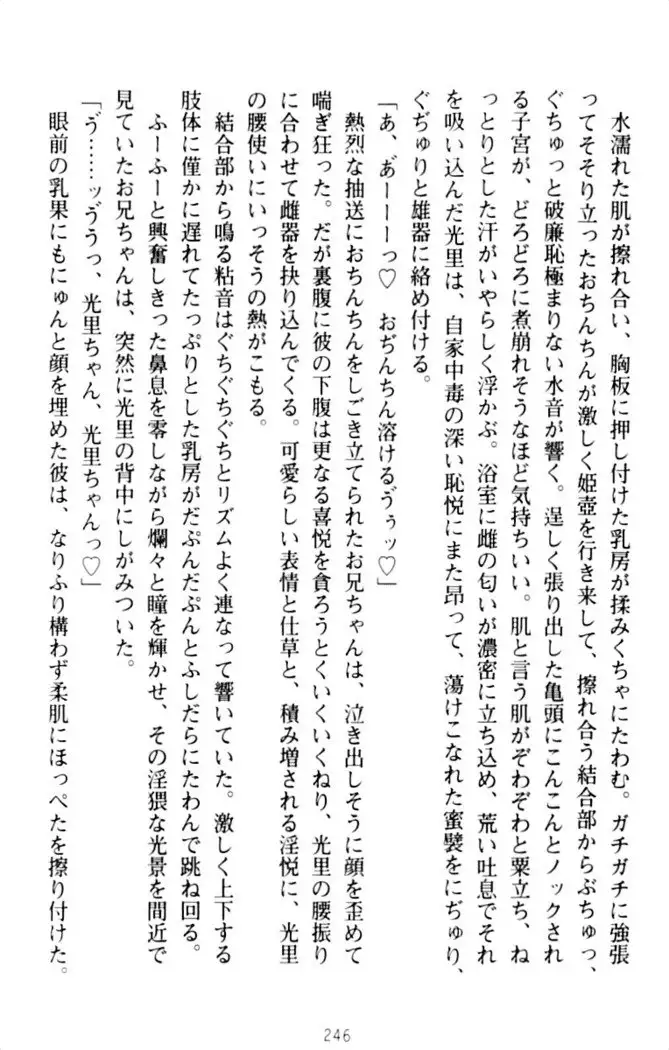 水濡れた肌が擦れ合い、胸板に押し付けた乳房が揉みくちゃにたわむ。ガチガチに強張
ってそそり立ったおちんちんが激しく姫壺を行き来して、擦れ合う結合部からぶちゅっ、
ぐちゅっと破廉恥極まりない水音が響く。逞しく張り出した亀頭にこんこんとノックされ
る子宮が、どろどろに煮崩れそうなほど気持ちいい。肌と言う肌がぞわぞわと粟立ち、ね
っとりとした汗がいやらしく浮かぶ。浴室に雌の匂いが濃密に立ち込め、荒い吐息でそれ
を吸い込んだ光里は、自家中毒の深い恥悦にまた昂って、蕩けこなれた蜜襞をにぢゅり、
ぐぢゅりと雄器に絡め付ける。
「あ、あ゛ーーーっ♡　おぢんちん溶けるゔぅッ♡」
熱烈な抽送におちんちんをしごき立てられたお兄ちゃんは、泣き出しそうに顔を歪めて
喘ぎ狂った。だが裏腹に彼の下腹は更なる喜悦を貪ろうとくいくいくねり、光里の腰振り
に合わせて雌器を抉り込んでくる。可愛らしい表情と仕草と、積み増される淫悦に、光里
の腰使いにいっそうの熱がこもる。
結合部から鳴る粘音はぐちぐちぐちとリズムよく連なって響いていた。激しく上下する
肢体に僅かに遅れてたっぷりとした乳房がだぷんだぷんとふしだらにたわんで跳ね回る。
ふーふーと興奮しきった鼻息を零しながら爛々と瞳を輝かせ、その淫猥な光景を間近で
見ていたお兄ちゃんは、突然に光里の背中にしがみついた。
「ゔ……ッゔうっ、光里ちゃん、光里ちゃんっ♡」
眼前の乳果にもにゅんと顔を埋めた彼は、なりふり構わず柔肌にほっぺたを擦り付けた。
246